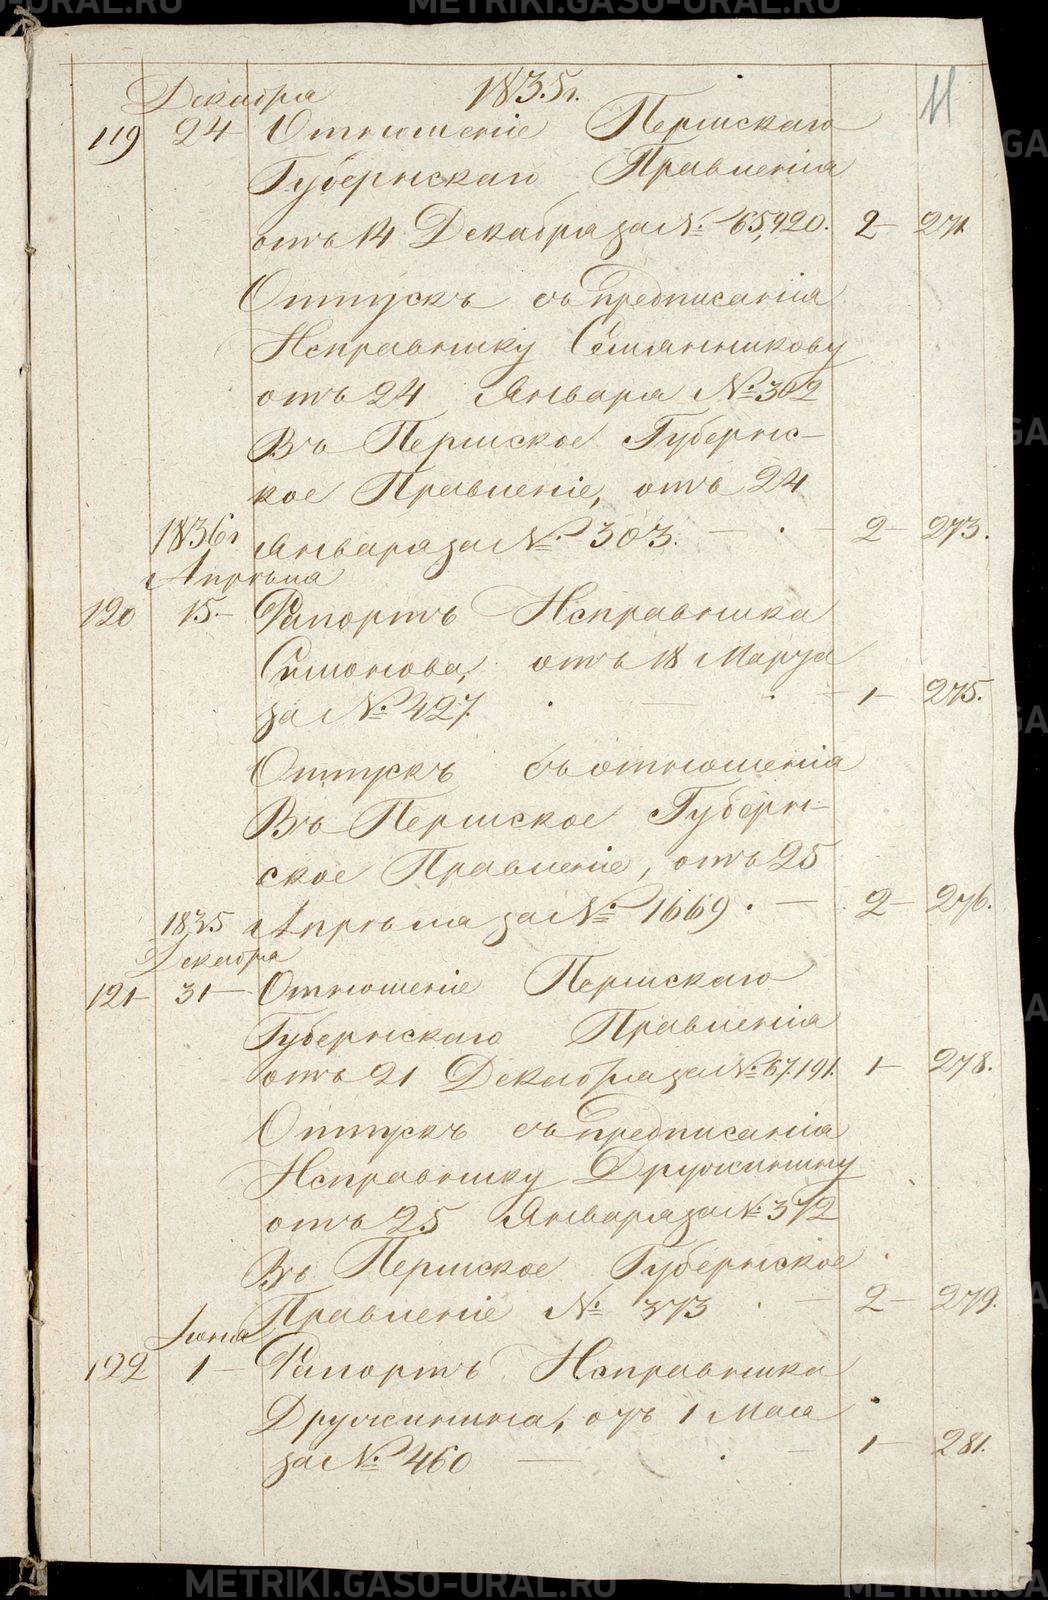 METRIKI.GASO-URAL.RU
Декабря 1835г. 11
119 24 Отношеніе Пермскаго
Губернскаго Правленія
отъ 14 Декабря за №. 65,920. 2 271
Отпускъ съ предписанія
Исправнику Семянникову
отъ 24 Января №. 302
Въ Пермское Губернс-
кое Правленіе, отъ 24
1836г Января за №. 303. 2 273.
Апрѣля
120 15. Рапортъ Исправника
Симонова, отъ 18 Марта
за №. 427. 1 275.
Отпускъ съ отношенія
Въ Пермское Губерн-
ское Правленіе, отъ 25
1835 Апрѣля за №. 1669. 2 276.
Декабря
121 31 Отношеніе Пермскаго
Губернскаго Правленія
отъ 21 Декабря за №. 67.191. 1 278.
Отпускъ съ предписанія
Исправнику Дружинину
отъ 25 Января за №. 372
Въ Пермское Губернское
Правленіе №. 373 2 279.
Іюня
122 1 Рапортъ Исправника
Дружинина, отъ 1 Мая
за №. 460 1 281.
METRIKI.GASO-URAL.RU